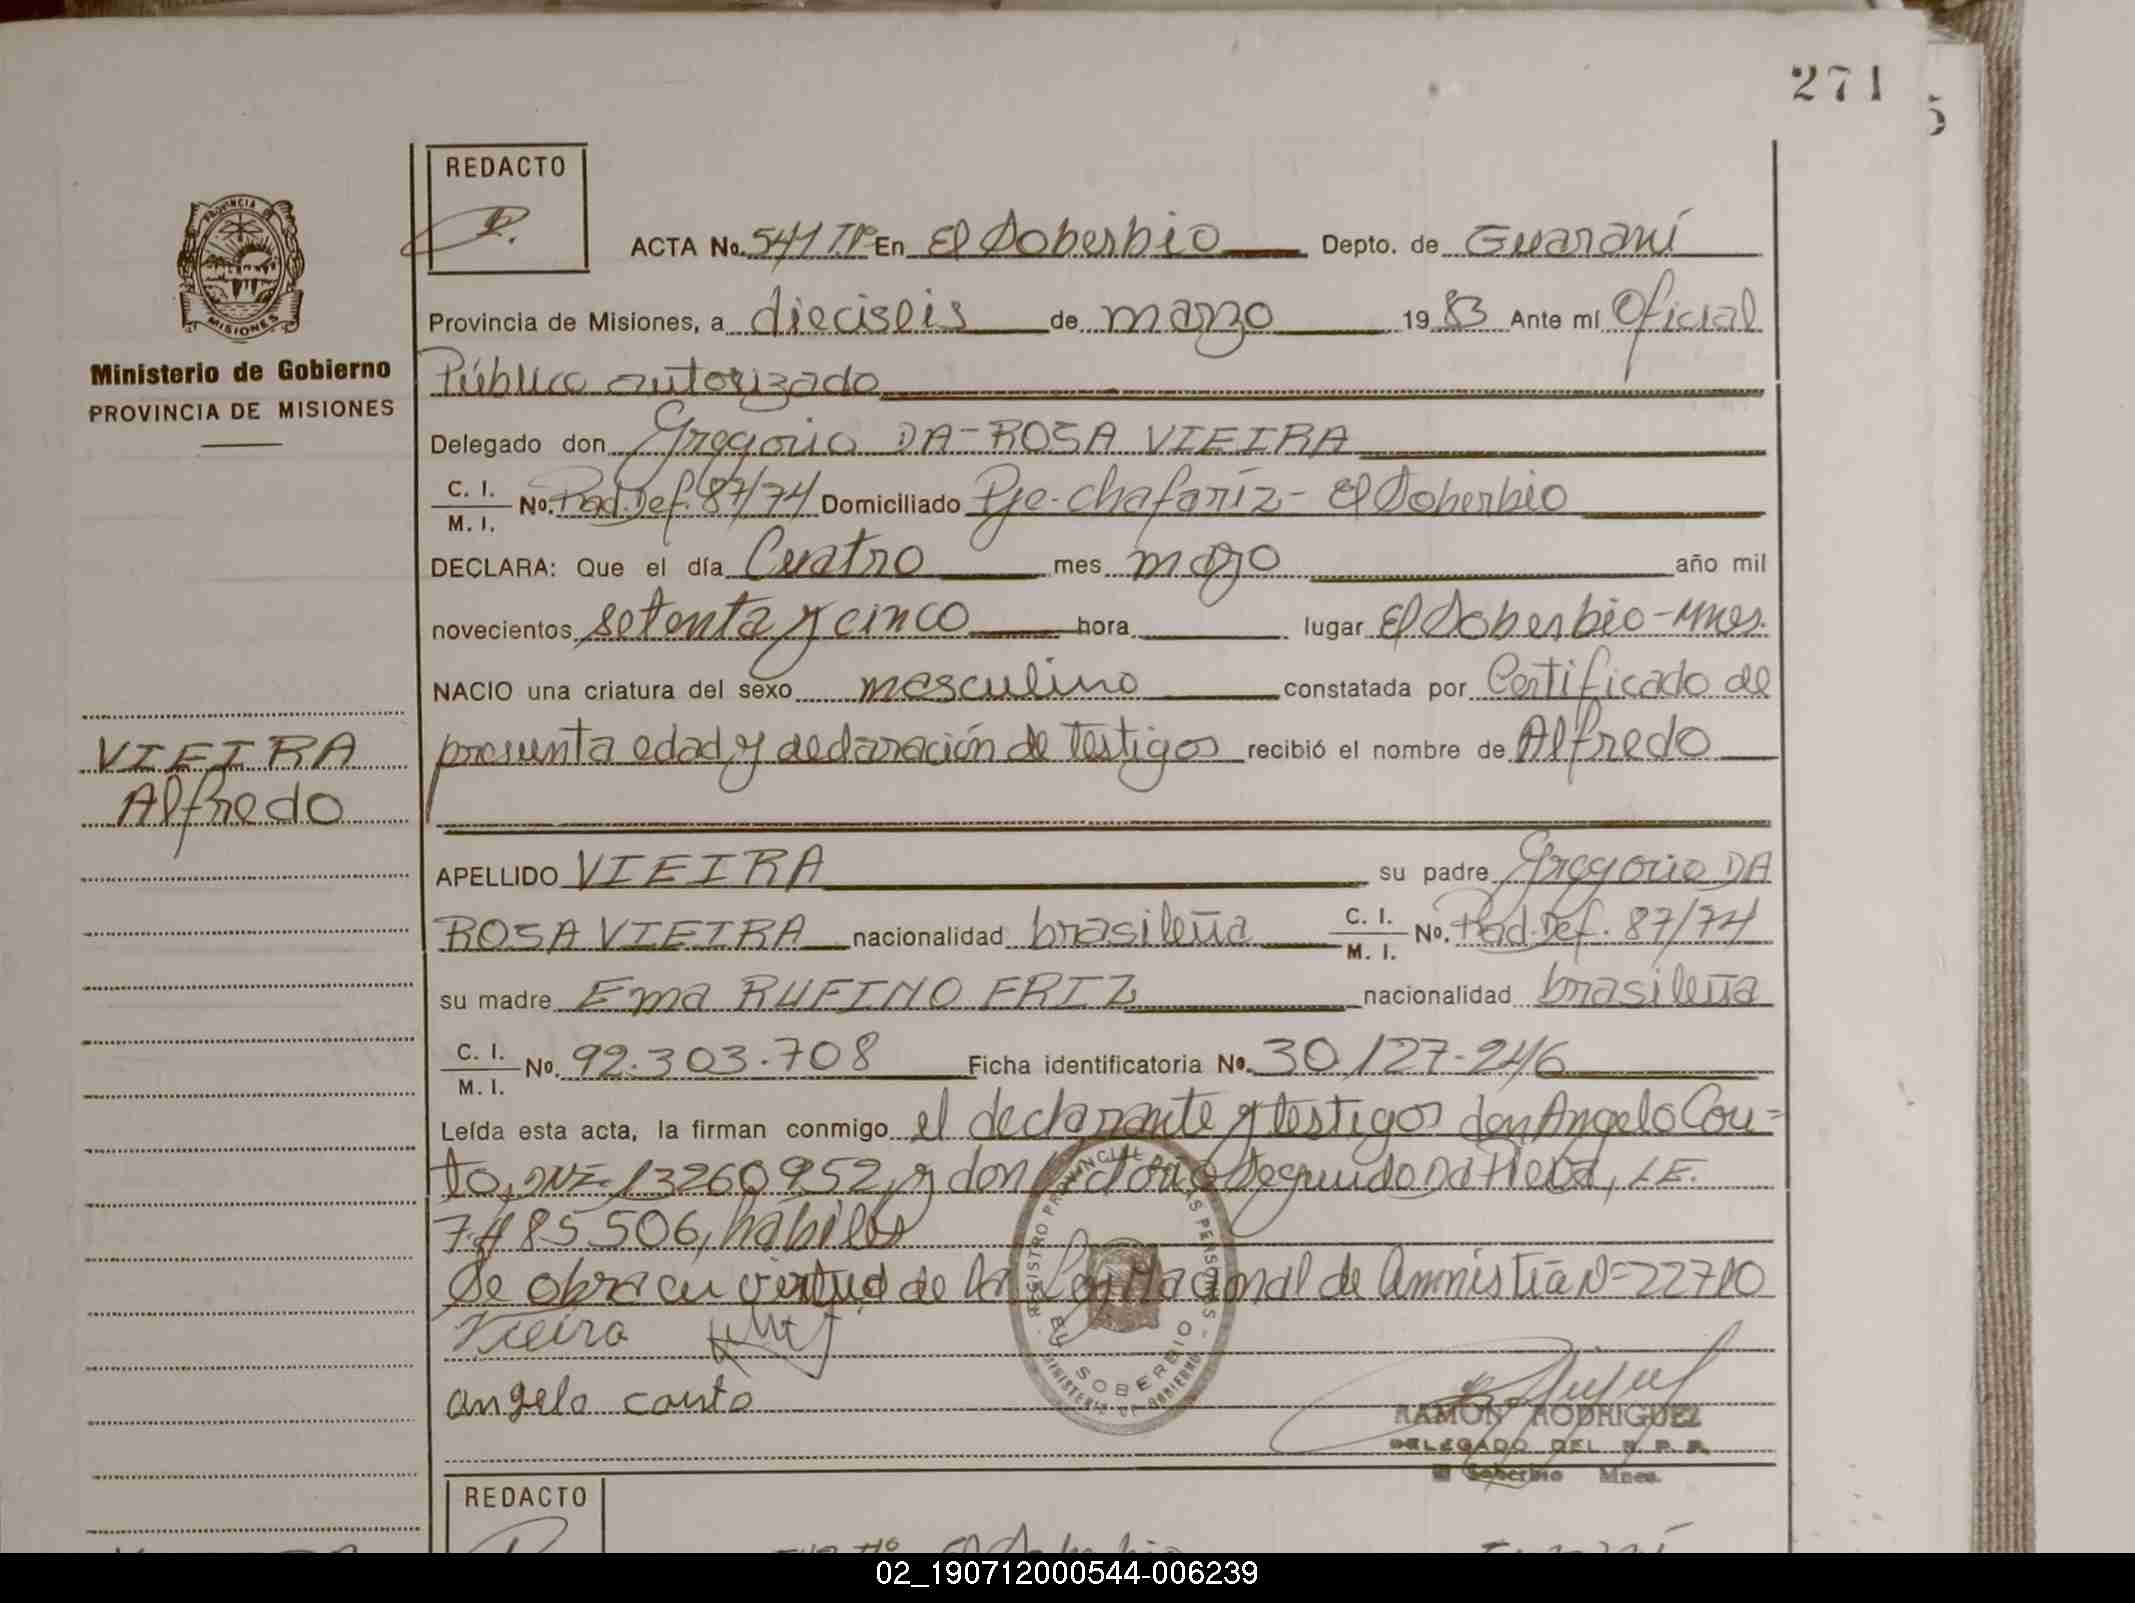 271
5
REDACTO
PROVINCIA
MISIONES
Ministerio de Gobierno
PROVINCIA DE MISIONES
ACTA No. 541 Tº En El Soberbio Depto. de Guaraní
Provincia de Misiones, a dieciseis de marzo 1983 Ante mí Oficial
Público autorizado
Delegado don Gregorio DA-ROSA VIEIRA
C. I.
M. I. No. Rad.Def. 87/74 Domiciliado Pje-chafariz- El Soberbio
DECLARA: Que el día Cuatro mes mayo año mil
novecientos setenta y cinco hora lugar El Soberbio-Mnes.
NACIO una criatura del sexo masculino constatada por Certificado de
presunta edad y declaración de testigos recibió el nombre de Alfredo
VIEIRA
Alfredo
APELLIDO VIEIRA su padre Gregorio DA
ROSA VIEIRA nacionalidad brasileña C. I.
M. I. No. Rad.Def. 87/74
su madre Ema RUFINO FRIZ nacionalidad brasileña
C. I.
M. I. No. 92.303.708 Ficha identificatoria No. 30.127-246
Leída esta acta, la firman conmigo el declarante y testigos don Angelo Cou=
to, DNI. 13260952, y don Segundo Da LE.
7.485.506, hábiles
Se obra en virtud de la Ley Nacional de Amnistía Nº 22710
Vieira
angelo couto
REGISTRO PROVINCIAL DE LAS PERSONAS
EL SOBERBIO
MINISTERIO DE GOBIERNO
RAMON RODRIGUEZ
DELEGADO DEL R. P. P.
El Soberbio Mnes.
REDACTO
02_190712000544-006239